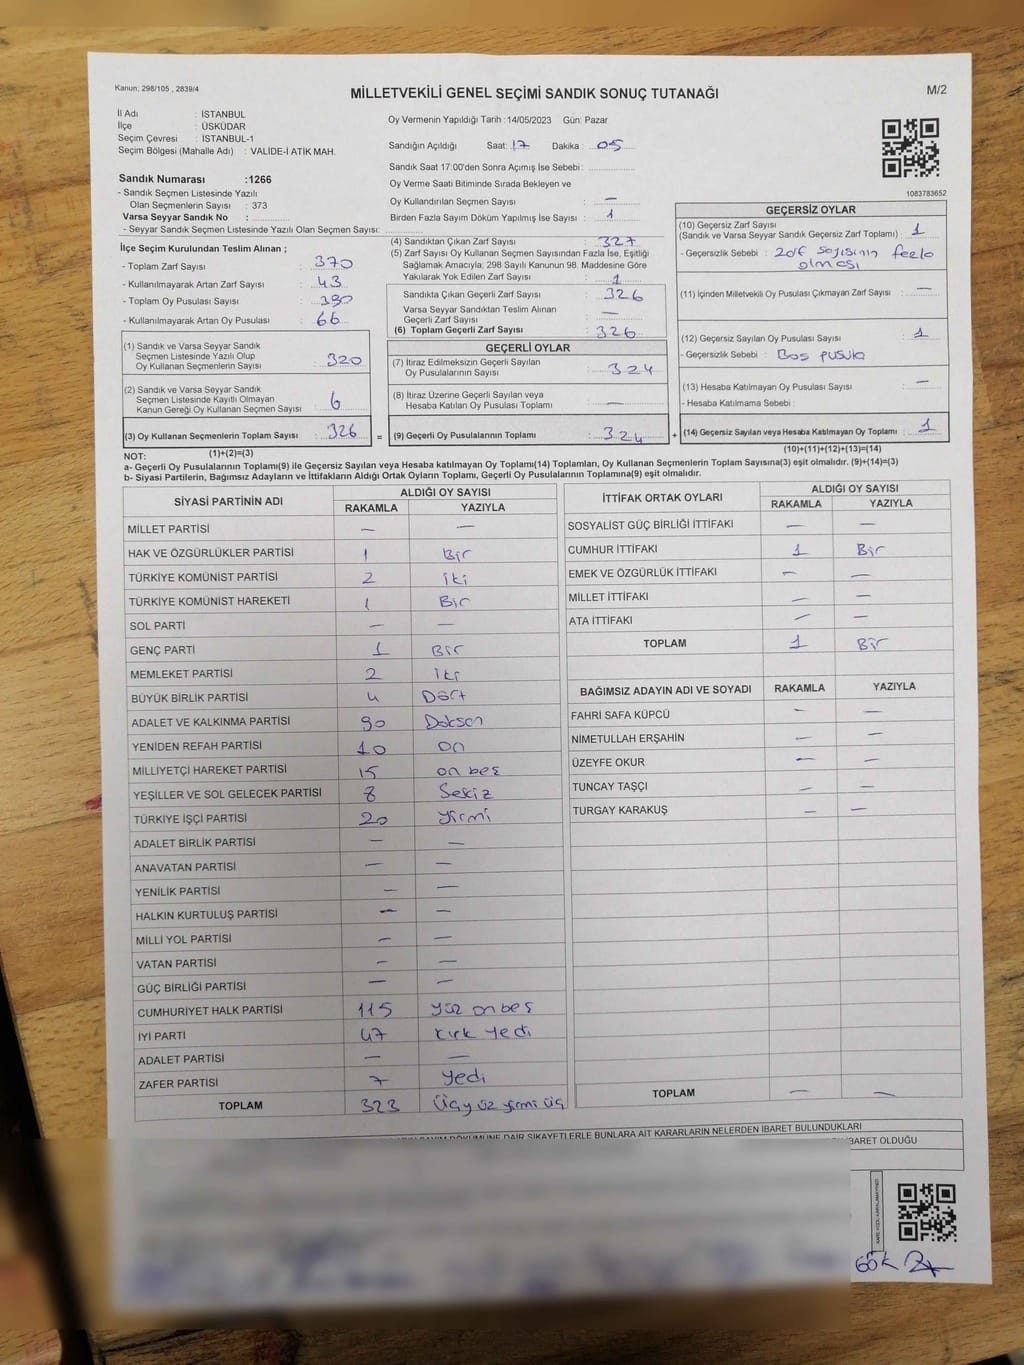 Kanun; 298/105 , 2839/4
MİLLETVEKİLİ GENEL SEÇİMİ SANDIK SONUÇ TUTANAĞI
M/2
İl Adı : İSTANBUL
İlçe : ÜSKÜDAR
Seçim Çevresi : İSTANBUL-1
Seçim Bölgesi (Mahalle Adı) : VALİDE-İ ATİK MAH.
Sandık Numarası :1266
- Sandık Seçmen Listesinde Yazılı
Olan Seçmenlerin Sayısı : 373
Varsa Seyyar Sandık No :
- Seyyar Sandık Seçmen Listesinde Yazılı Olan Seçmen Sayısı:
Oy Vermenin Yapıldığı Tarih :14/05/2023 Gün: Pazar
Sandığın Açıldığı Saat: 17 Dakika : 05
Sandık Saat 17:00'den Sonra Açımış İse Sebebi :
Oy Verme Saati Bitiminde Sırada Bekleyen ve
Oy Kullandırılan Seçmen Sayısı : —
Birden Fazla Sayım Döküm Yapılmış İse Sayısı : 1
1083783652
İlçe Seçim Kurulundan Teslim Alınan ;
- Toplam Zarf Sayısı : 370
- Kullanılmayarak Artan Zarf Sayısı : 43
- Toplam Oy Pusulası Sayısı : 390
- Kullanılmayarak Artan Oy Pusulası : 66
(1) Sandık ve Varsa Seyyar Sandık
Seçmen Listesinde Yazılı Olup
Oy Kullanan Seçmenlerin Sayısı : 320
(2) Sandık ve Varsa Seyyar Sandık
Seçmen Listesinde Kayıtlı Olmayan
Kanun Gereği Oy Kullanan Seçmen Sayısı : 6
(3) Oy Kullanan Seçmenlerin Toplam Sayısı : 326
(4) Sandıktan Çıkan Zarf Sayısı : 327
(5) Zarf Sayısı Oy Kullanan Seçmen Sayısından Fazla İse, Eşitliği
Sağlamak Amacıyla; 298 Sayılı Kanunun 98. Maddesine Göre
Yakılarak Yok Edilen Zarf Sayısı : 1
Sandıkta Çıkan Geçerli Zarf Sayısı : 326
Varsa Seyyar Sandıktan Teslim Alınan
Geçerli Zarf Sayısı : —
(6) Toplam Geçerli Zarf Sayısı : 326
GEÇERLİ OYLAR
(7) İtiraz Edilmeksizin Geçerli Sayılan
Oy Pusulalarının Sayısı : 324
(8) İtiraz Üzerine Geçerli Sayılan veya
Hesaba Katılan Oy Pusulası Toplamı : —
= (9) Geçerli Oy Pusulalarının Toplamı : 324
GEÇERSİZ OYLAR
(10) Geçersiz Zarf Sayısı
(Sandık ve Varsa Seyyar Sandık Geçersiz Zarf Toplamı) : 1
- Geçersizlik Sebebi : zarf sayısının fazla
olması
(11) İçinden Milletvekili Oy Pusulası Çıkmayan Zarf Sayısı : —
(12) Geçersiz Sayılan Oy Pusulası Sayısı : 1
- Geçersizlik Sebebi : Boş pusula
(13) Hesaba Katılmayan Oy Pusulası Sayısı : —
- Hesaba Katılmama Sebebi :
+ (14) Geçersiz Sayılan veya Hesaba Katılmayan Oy Toplamı : 1
NOT: (1)+(2)=(3)
(10)+(11)+(12)+(13)=(14)
a- Geçerli Oy Pusulalarının Toplamı(9) ile Geçersiz Sayılan veya Hesaba katılmayan Oy Toplamı(14) Toplamları, Oy Kullanan Seçmenlerin Toplam Sayısına(3) eşit olmalıdır. (9)+(14)=(3)
b- Siyasi Partilerin, Bağımsız Adayların ve İttifakların Aldığı Ortak Oyların Toplamı, Geçerli Oy Pusulalarının Toplamına(9) eşit olmalıdır.
SİYASİ PARTİNİN ADI ALDIĞI OY SAYISI
RAKAMLA YAZIYLA
MİLLET PARTİSİ — —
HAK VE ÖZGÜRLÜKLER PARTİSİ 1 Bir
TÜRKİYE KOMÜNİST PARTİSİ 2 iki
TÜRKİYE KOMÜNİST HAREKETİ 1 Bir
SOL PARTİ — —
GENÇ PARTİ 1 Bir
MEMLEKET PARTİSİ 2 iki
BÜYÜK BİRLİK PARTİSİ 4 Dört
ADALET VE KALKINMA PARTİSİ 90 Doksan
YENİDEN REFAH PARTİSİ 10 on
MİLLİYETÇİ HAREKET PARTİSİ 15 on beş
YEŞİLLER VE SOL GELECEK PARTİSİ 8 Sekiz
TÜRKİYE İŞÇİ PARTİSİ 20 yirmi
ADALET BİRLİK PARTİSİ — —
ANAVATAN PARTİSİ — —
YENİLİK PARTİSİ — —
HALKIN KURTULUŞ PARTİSİ — —
MİLLİ YOL PARTİSİ — —
VATAN PARTİSİ — —
GÜÇ BİRLİĞİ PARTİSİ — —
CUMHURİYET HALK PARTİSİ 115 yüz on beş
İYİ PARTİ 47 kırk yedi
ADALET PARTİSİ — —
ZAFER PARTİSİ 7 yedi
TOPLAM 323 üçyüz yirmi üç
İTTİFAK ORTAK OYLARI ALDIĞI OY SAYISI
RAKAMLA YAZIYLA
SOSYALİST GÜÇ BİRLİĞİ İTTİFAKI — —
CUMHUR İTTİFAKI 1 Bir
EMEK VE ÖZGÜRLÜK İTTİFAKI — —
MİLLET İTTİFAKI — —
ATA İTTİFAKI — —
TOPLAM 1 Bir
BAĞIMSIZ ADAYIN ADI VE SOYADI RAKAMLA YAZIYLA
FAHRİ SAFA KÜPCÜ — —
NİMETULLAH ERŞAHİN — —
ÜZEYFE OKUR — —
TUNCAY TAŞÇI — —
TURGAY KARAKUŞ — —
TOPLAM — —
SAYIM DÖKÜMÜNE DAİR ŞİKAYETLERLE BUNLARA AİT KARARLARIN NELERDEN İBARET BULUNDUKLARI
İBARET OLDUĞU